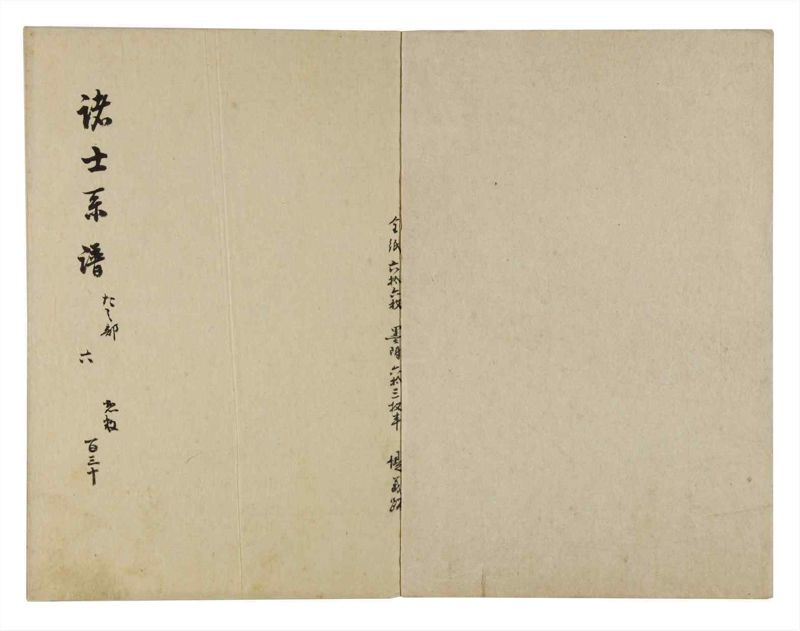 全紙六拾六枚 墨附六拾三枚半
諸士系譜
たノ部
六
惣数
百三十